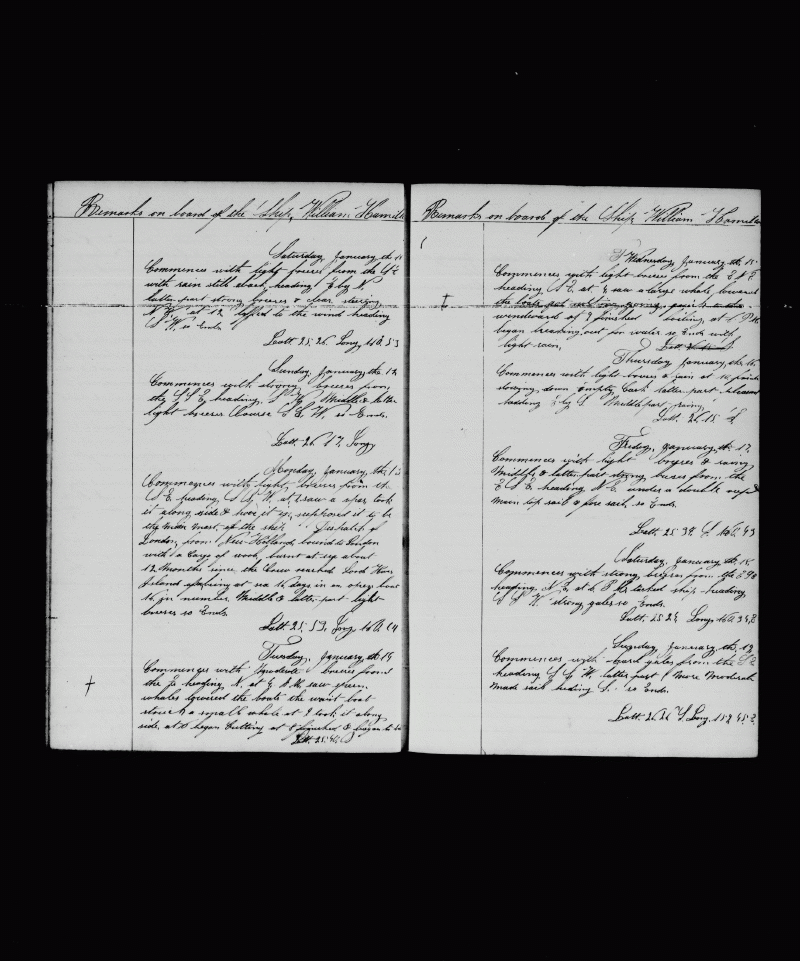 Remarks on board of the Ship, William Hamilto
Saturday, January, th. 11
Commences with light breeses from the S E
with rain still stack heading E by N
latter part strong breeses & clear steering
N W at 12 luffed to the wind heading
S W so Ends
Latt 25. 26. Long, 160. 53
Sunday, January, the 12
Commences with strong breeses from
the S S E heading, S W Middle & latter
light breeses Course S S W. so Ends.
Latt. 26 17. Long
Monday, January, the 13
Commences with light breeses from the
S E heading, S by W, at 2 saw a spar took
it along side & hove it up, supposed it to be
the Mizen Mast, of the ship
London, from New Holland, bound to London
with a Cargo of wool, burnt at sea about
12 Months since the Crew reached Lord How
Island after being at sea 14 days in an open boat
16 in number. Middle & latter part light
breeses so Ends.
Latt 25. 53, Long, 160. 14
Tuesday, January, th 14
Commences with Moderate breeses from
the E heading N. at 7 A.M. saw sperm
whales lowered the boats the waist boat
struck a small whale at 9 took it along
side, at 10 began Cutting at 1 finished & began to
Latt. 25.
Remarks on board of the Ship, William Hamilto
Wednesday, January, the. 15.
Commences with light breeses from the E S E
heading N E at saw a large whale lowered
the boats but
windward of finished boiling at 6 P.M.
began breaking out for water so Ends with
light rain,
Thursday January, the 16,
Commences with light breeses & rain at
stowing, down Empty Cask latter part pleasant
heading E by S. Middle part rainy
Latt. 26. 15 S,
Friday, January, the 17.
Commences with light breeses & rainy
Middle & latter part strong, breses from the
E S E heading N E under a double reefd
Main top sail & fore sail, so Ends.
Latt. 25 39. S. 160. 43
Saturday, January, the. 18.
Commences with strong, breeses from the
heading, N E at 6 P M tacked ship heading,
S S W. strong gales so Ends.
Latt. 25 24 Long, 160. 34, E
Sunday, January, the. 19
Commences with hard gales from the S E
heading S S W. latter part More Moderate
Made sail heading S. so Ends.
Latt. 26. 26 S Long, 159. 45. E